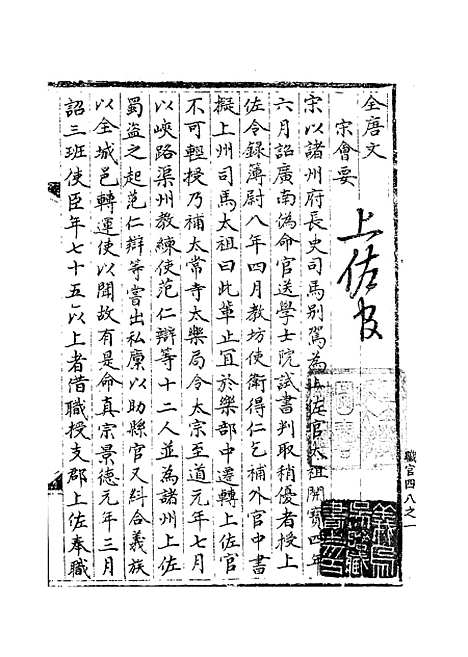 全唐文
宋會要
上佐官
宋以諸州府長史司馬别駕為上佐官太祖開寶四年
六月詔廣南偽命官送學士院試書判取稍優者授上
佐令錄簿尉八年四月教坊使衛得仁乞補外官中書
擬上州司馬太祖曰此輩止宜於樂部中遷轉上佐官
不可輕授乃補太常寺太樂局令太宗至道元年七月
以峽路渠州教練使范仁辯等十二人並為諸州上佐
蜀盜之起范仁辯等嘗出私廩以助縣官又糾合義族
以全城邑轉運使以聞故有是命真宗景德元年三月
詔三班使臣年七十五以上者借職授支郡上佐奉職
職官四八之一